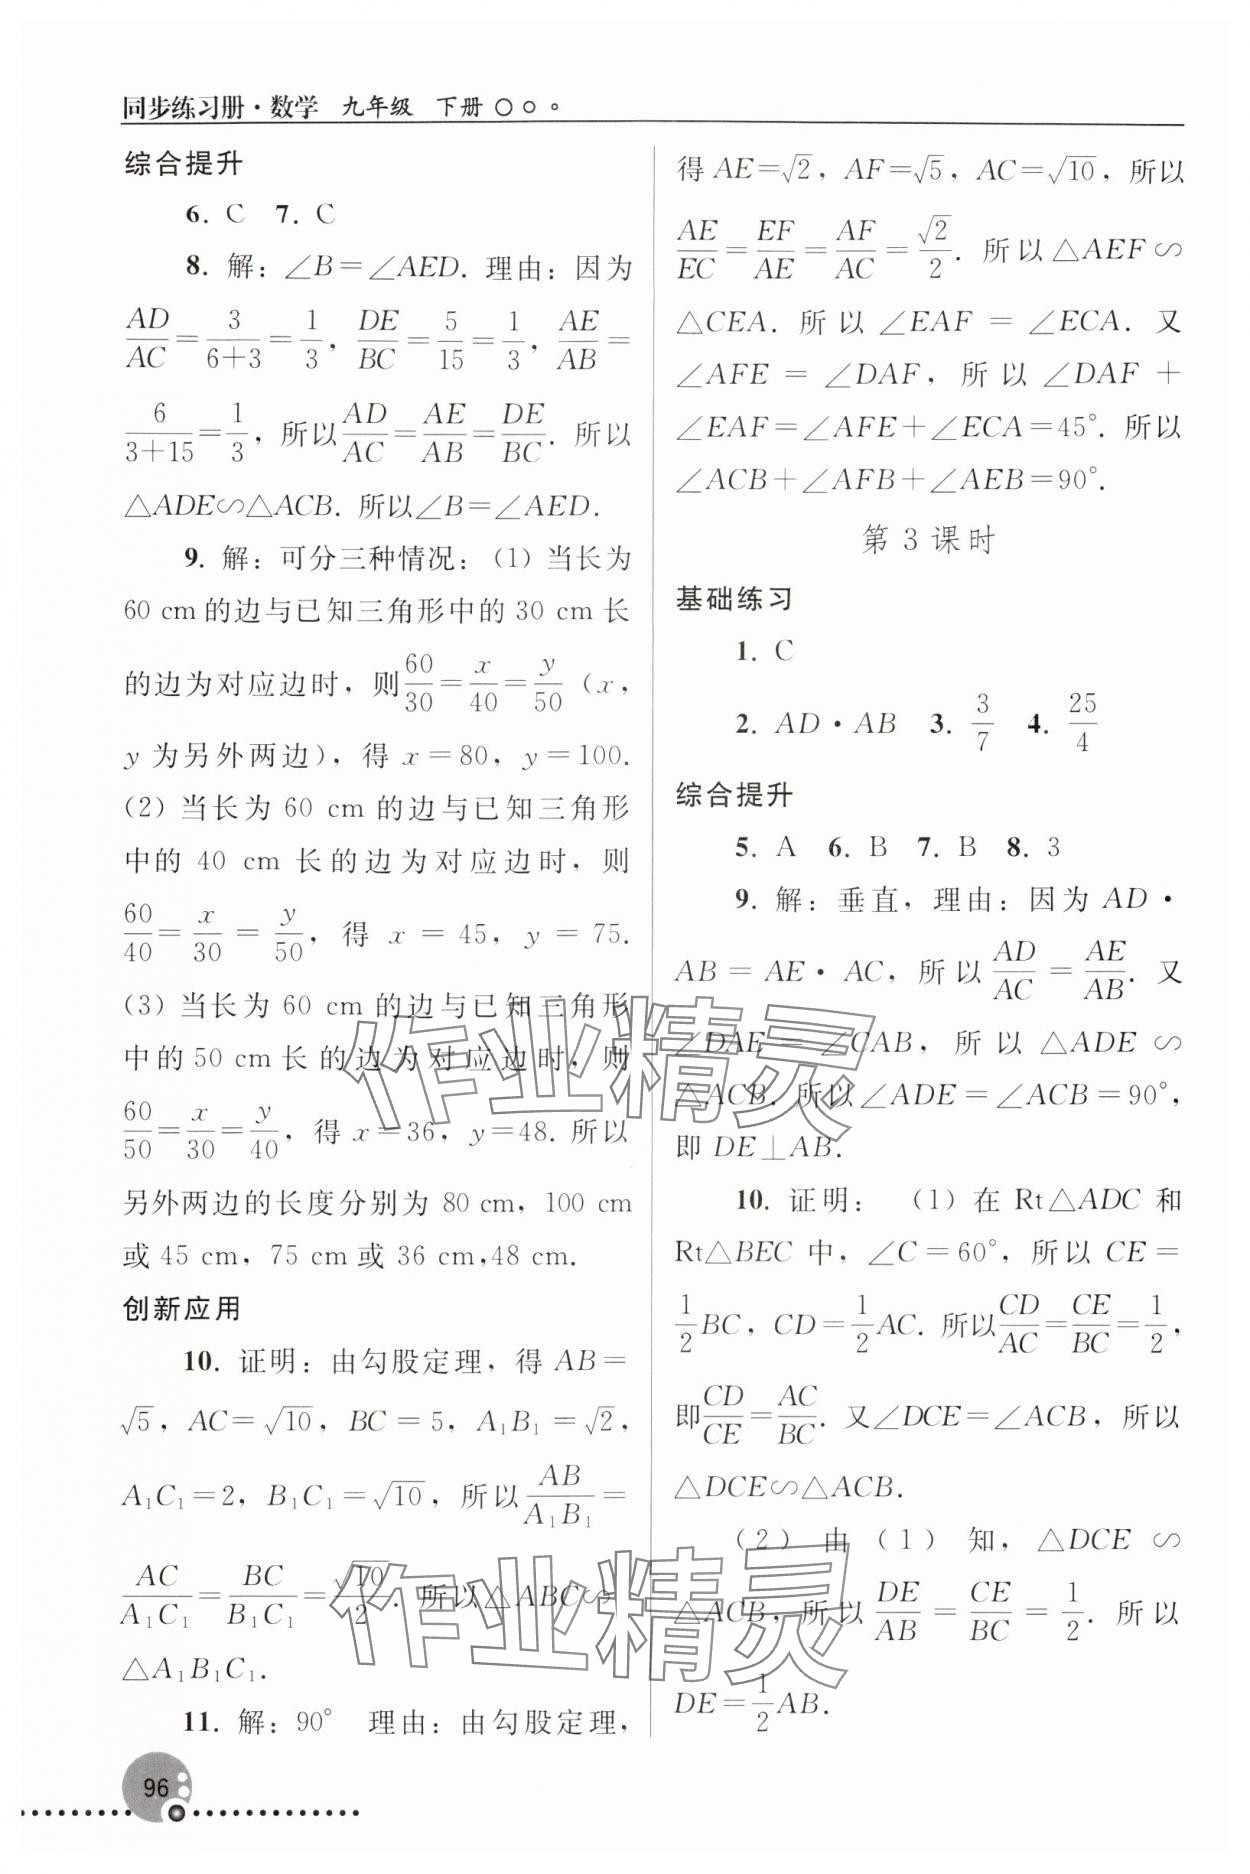 同步练习册·数学 九年级 下册
综合提升
6. C 7. C
8. 解：∠B＝∠AED. 理由：因为
AD/AC＝3/(6＋3)＝1/3，DE/BC＝5/15＝1/3，AE/AB＝
6/(3＋15)＝1/3，所以AD/AC＝AE/AB＝DE/BC. 所以
△ADE∽△ACB. 所以∠B＝∠AED.
9. 解：可分三种情况：(1) 当长为
60 cm 的边与已知三角形中的 30 cm 长
的边为对应边时，则60/30＝x/40＝y/50（x，
y 为另外两边），得 x＝80，y＝100.
(2) 当长为 60 cm 的边与已知三角形
中的 40 cm 长的边为对应边时，则
60/40＝x/30＝y/50，得 x＝45，y＝75.
(3) 当长为 60 cm 的边与已知三角形
中的 50 cm 长的边为对应边时，则
60/50＝x/30＝y/40，得 x＝36，y＝48. 所以
另外两边的长度分别为 80 cm，100 cm
或 45 cm，75 cm 或 36 cm,48 cm.
创新应用
10. 证明：由勾股定理，得 AB＝
√5，AC＝√10，BC＝5，A₁B₁＝√2，
A₁C₁＝2，B₁C₁＝√10，所以AB/A₁B₁＝
AC/A₁C₁＝BC/B₁C₁＝√10/2. 所以△ABC∽
△A₁B₁C₁.
11. 解：90° 理由：由勾股定理，
96
得 AE＝√2，AF＝√5，AC＝√10，所以
AE/EC＝EF/AE＝AF/AC＝√2/2. 所以△AEF∽
△CEA. 所以∠EAF＝∠ECA. 又
∠AFE＝∠DAF，所以∠DAF＋
∠EAF＝∠AFE＋∠ECA＝45°. 所以
∠ACB＋∠AFB＋∠AEB＝90°.
第 3 课时
基础练习
1. C
2. AD·AB 3. 3/7 4. 25/4
综合提升
5. A 6. B 7. B 8. 3
9. 解：垂直，理由：因为 AD·
AB＝AE·AC，所以AD/AC＝AE/AB. 又
∠DAE＝∠CAB，所以△ADE∽
△ACB. 所以∠ADE＝∠ACB＝90°，
即 DE⊥AB.
10. 证明：（1）在 Rt△ADC 和
Rt△BEC 中，∠C＝60°，所以 CE＝
1/2BC，CD＝1/2AC. 所以CD/AC＝CE/BC＝1/2，
即CD/CE＝AC/BC. 又∠DCE＝∠ACB，所以
△DCE∽△ACB.
（2）由（1）知，△DCE∽
△ACB，所以DE/AB＝CE/BC＝1/2. 所以
DE＝1/2AB.
作业精灵
作业精灵